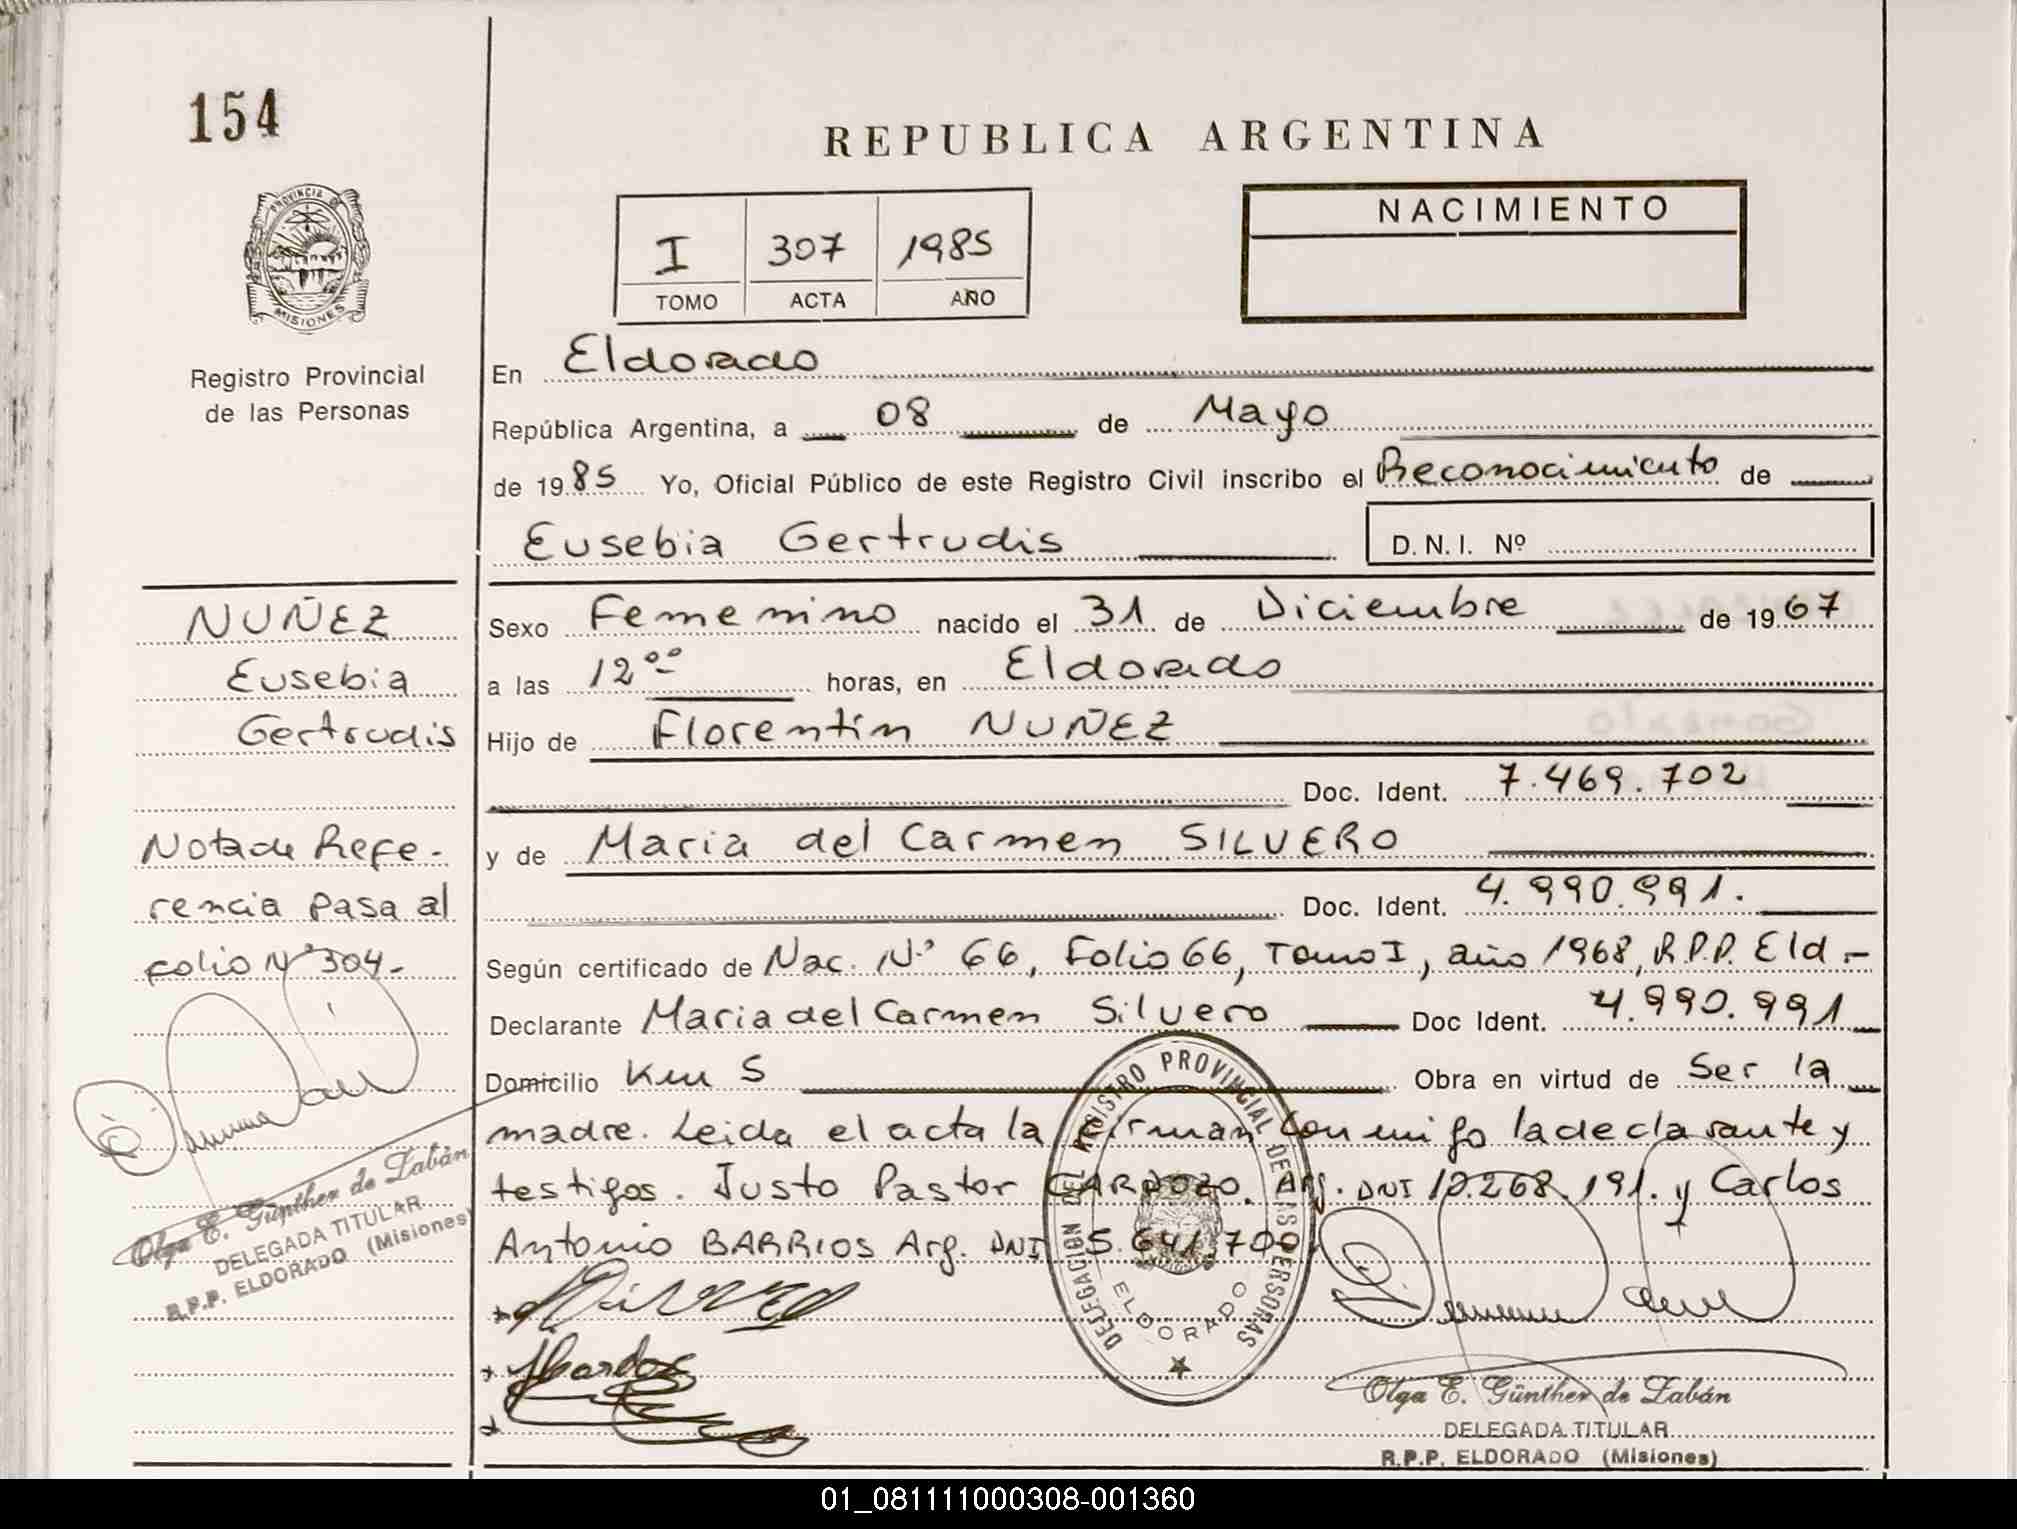 154
REPUBLICA ARGENTINA
PROVINCIA D
MISIONES
I 307 1985
TOMO ACTA AÑO
NACIMIENTO
Registro Provincial
de las Personas
En Eldorado
República Argentina, a 08 de Mayo
de 1985 Yo, Oficial Público de este Registro Civil inscribo el Reconocimiento de
Eusebia Gertrudis D.N.I. Nº
NUÑEZ
Eusebia
Gertrudis
Nota de Refe-
rencia pasa al
folio Nº 304.-
Olga E. Günther de Zabán
DELEGADA TITULAR
R.P.P. ELDORADO (Misiones)
Sexo Femenino nacido el 31 de Diciembre de 1967
a las 12ºº horas, en Eldorado
Hijo de Florentín NUÑEZ
Doc. Ident. 7.469.702
y de Maria del Carmen SILVERO
Doc. Ident. 4.990.991.
Según certificado de Nac. N.º 66, Folio 66, Tomo I, año 1968, R.P.P. Eld.-
Declarante Maria del Carmen Silvero Doc Ident. 4.990.991
Domicilio Km 5 Obra en virtud de Ser la
madre. Leida el acta la firman conmigo la declarante y
testigos. Justo Pastor CARDOZO. Arg. DNI 12.268.191. y Carlos
Antonio BARRIOS Arg. DNI 5.641.700
DELEGACION DEL REGISTRO PROVINCIAL DE LAS PERSONAS
ELDORADO
Olga E. Günther de Zabán
DELEGADA TITULAR
R.P.P. ELDORADO (Misiones)
01_081111000308-001360